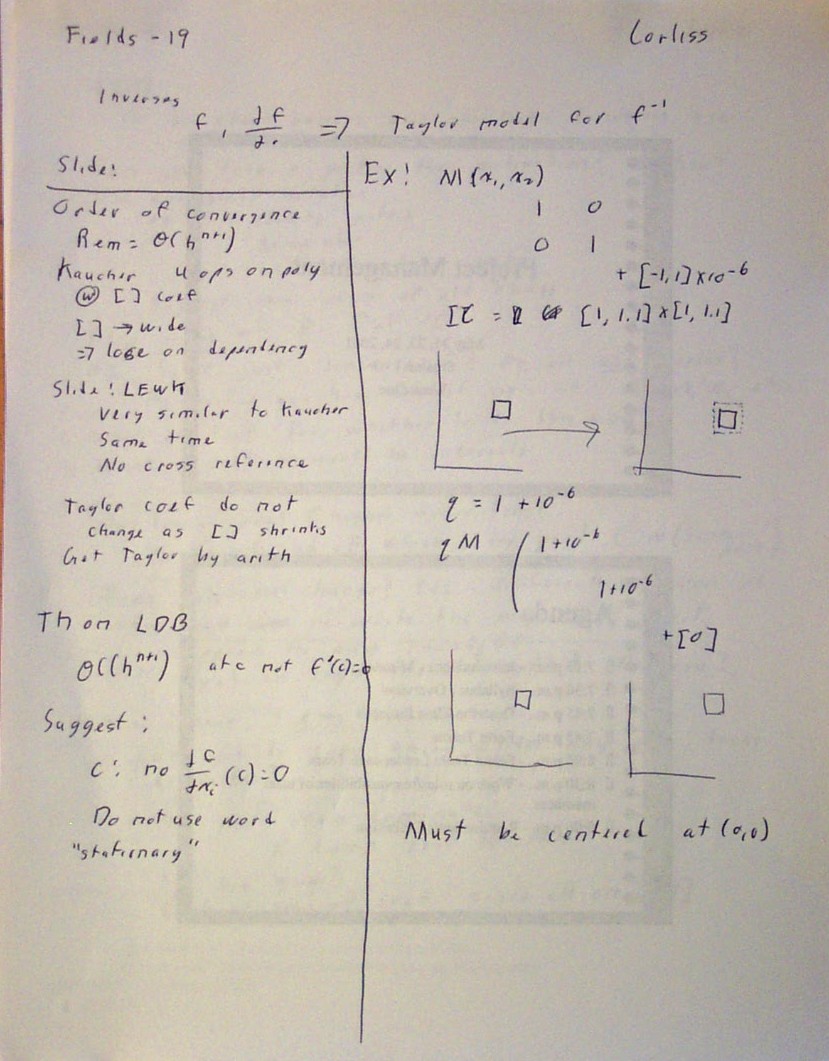 Fields - 19
Corliss
Inverses
f, ∂f/∂. => Taylor model for f⁻¹
Slide!
Order of convergence
Rem = O(hⁿ⁺¹)
Kaucher 4 ops on poly
@ [] coef
[] → wide
=> lose on dependency
Slide! LEWK
Very similar to Kaucher
Same time
No cross reference
Taylor coef do not
change as [] shrinks
Get Taylor by arith
Th on LDB
O((hⁿ⁺¹) at c not f'(c)=0
Suggest:
C: no ∂f/∂xᵢ (c) = 0
Do not use word
"stationary"
Ex! M(x₁, x₂)
1 0
0 1
+ [-1,1]×10⁻⁶
= [1, 1.1]×[1, 1.1]
q = 1 + 10⁻⁶
qM ( 1+10⁻⁶
1+10⁻⁶
+[0]
Must be centered at (0,0)
Project Management
Agenda